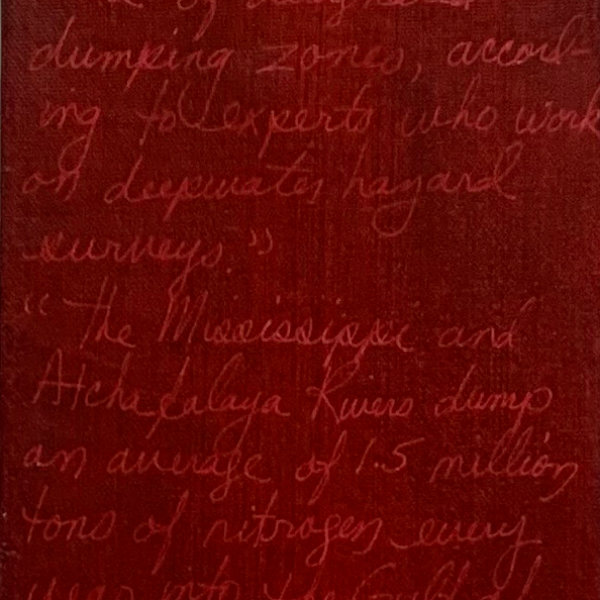 dumping zones, accord-
ing to experts who work
on deepwater hazard
surveys."
"The Mississippi and
Atchafalaya Rivers dump
an average of 1.5 million
tons of nitrogen every
year into the Gulf of